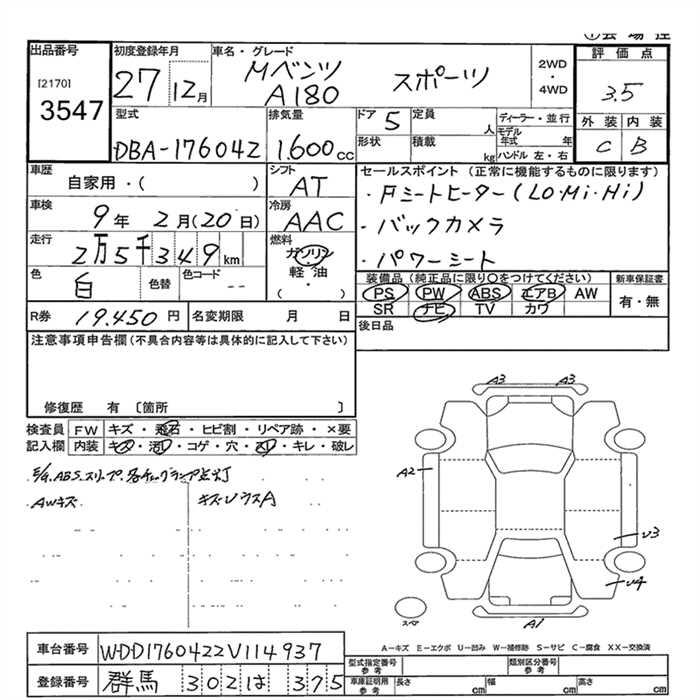 出品番号 初度登録年月 車名・グレード 2WD・4WD 評価点
[2170]
3547
27 12月 Mベンツ A180 スポーツ 3.5
型式 排気量 ドア 5 定員 人 ディーラー・並行 外装 内装
DBA-176042 1.600cc 形状 積載 kg モデル年式 年 C B
ハンドル 左・右
車歴 シフト セールスポイント(正常に機能するものに限ります)
自家用・( ) AT ・Fシートヒーター(LO・Mi・Hi)
車検 冷房 ・バックカメラ
9年 2月(20日) AAC ・パワーシート
走行 燃料
2万5千349km ガソリン・軽油・( )
色 白 色替 色コード -- 装備品(純正品に限り○をつけてください) 新車保証書
PS PW ABS エアB AW 有・無
SR ナビ TV カワ
R券 19.450円 名変期限 月 日 後日品
注意事項申告欄(不具合内容等は具体的に記入して下さい)
修復歴 有 〔箇所 〕
検査員 FW キズ・飛石・ヒビ割・リペア跡・×要
記入欄 内装 キズ・汚レ・コゲ・穴・スレ・キレ・破レ
E/G.ABS.スリップ.
AWキズ キズ・ウスA
A3 A3
A2
U3
U4
スペア
A1
A-キズ E-エクボ U-凹み W-補修跡 S-サビ C-腐食 XX-交換済
車台番号 WDD1760422V114937
型式指定番号 参考 類別区分番号 参考
登録番号 群馬 302 は 375
車庫証明用 参考 長さ cm 幅 cm 高さ cm